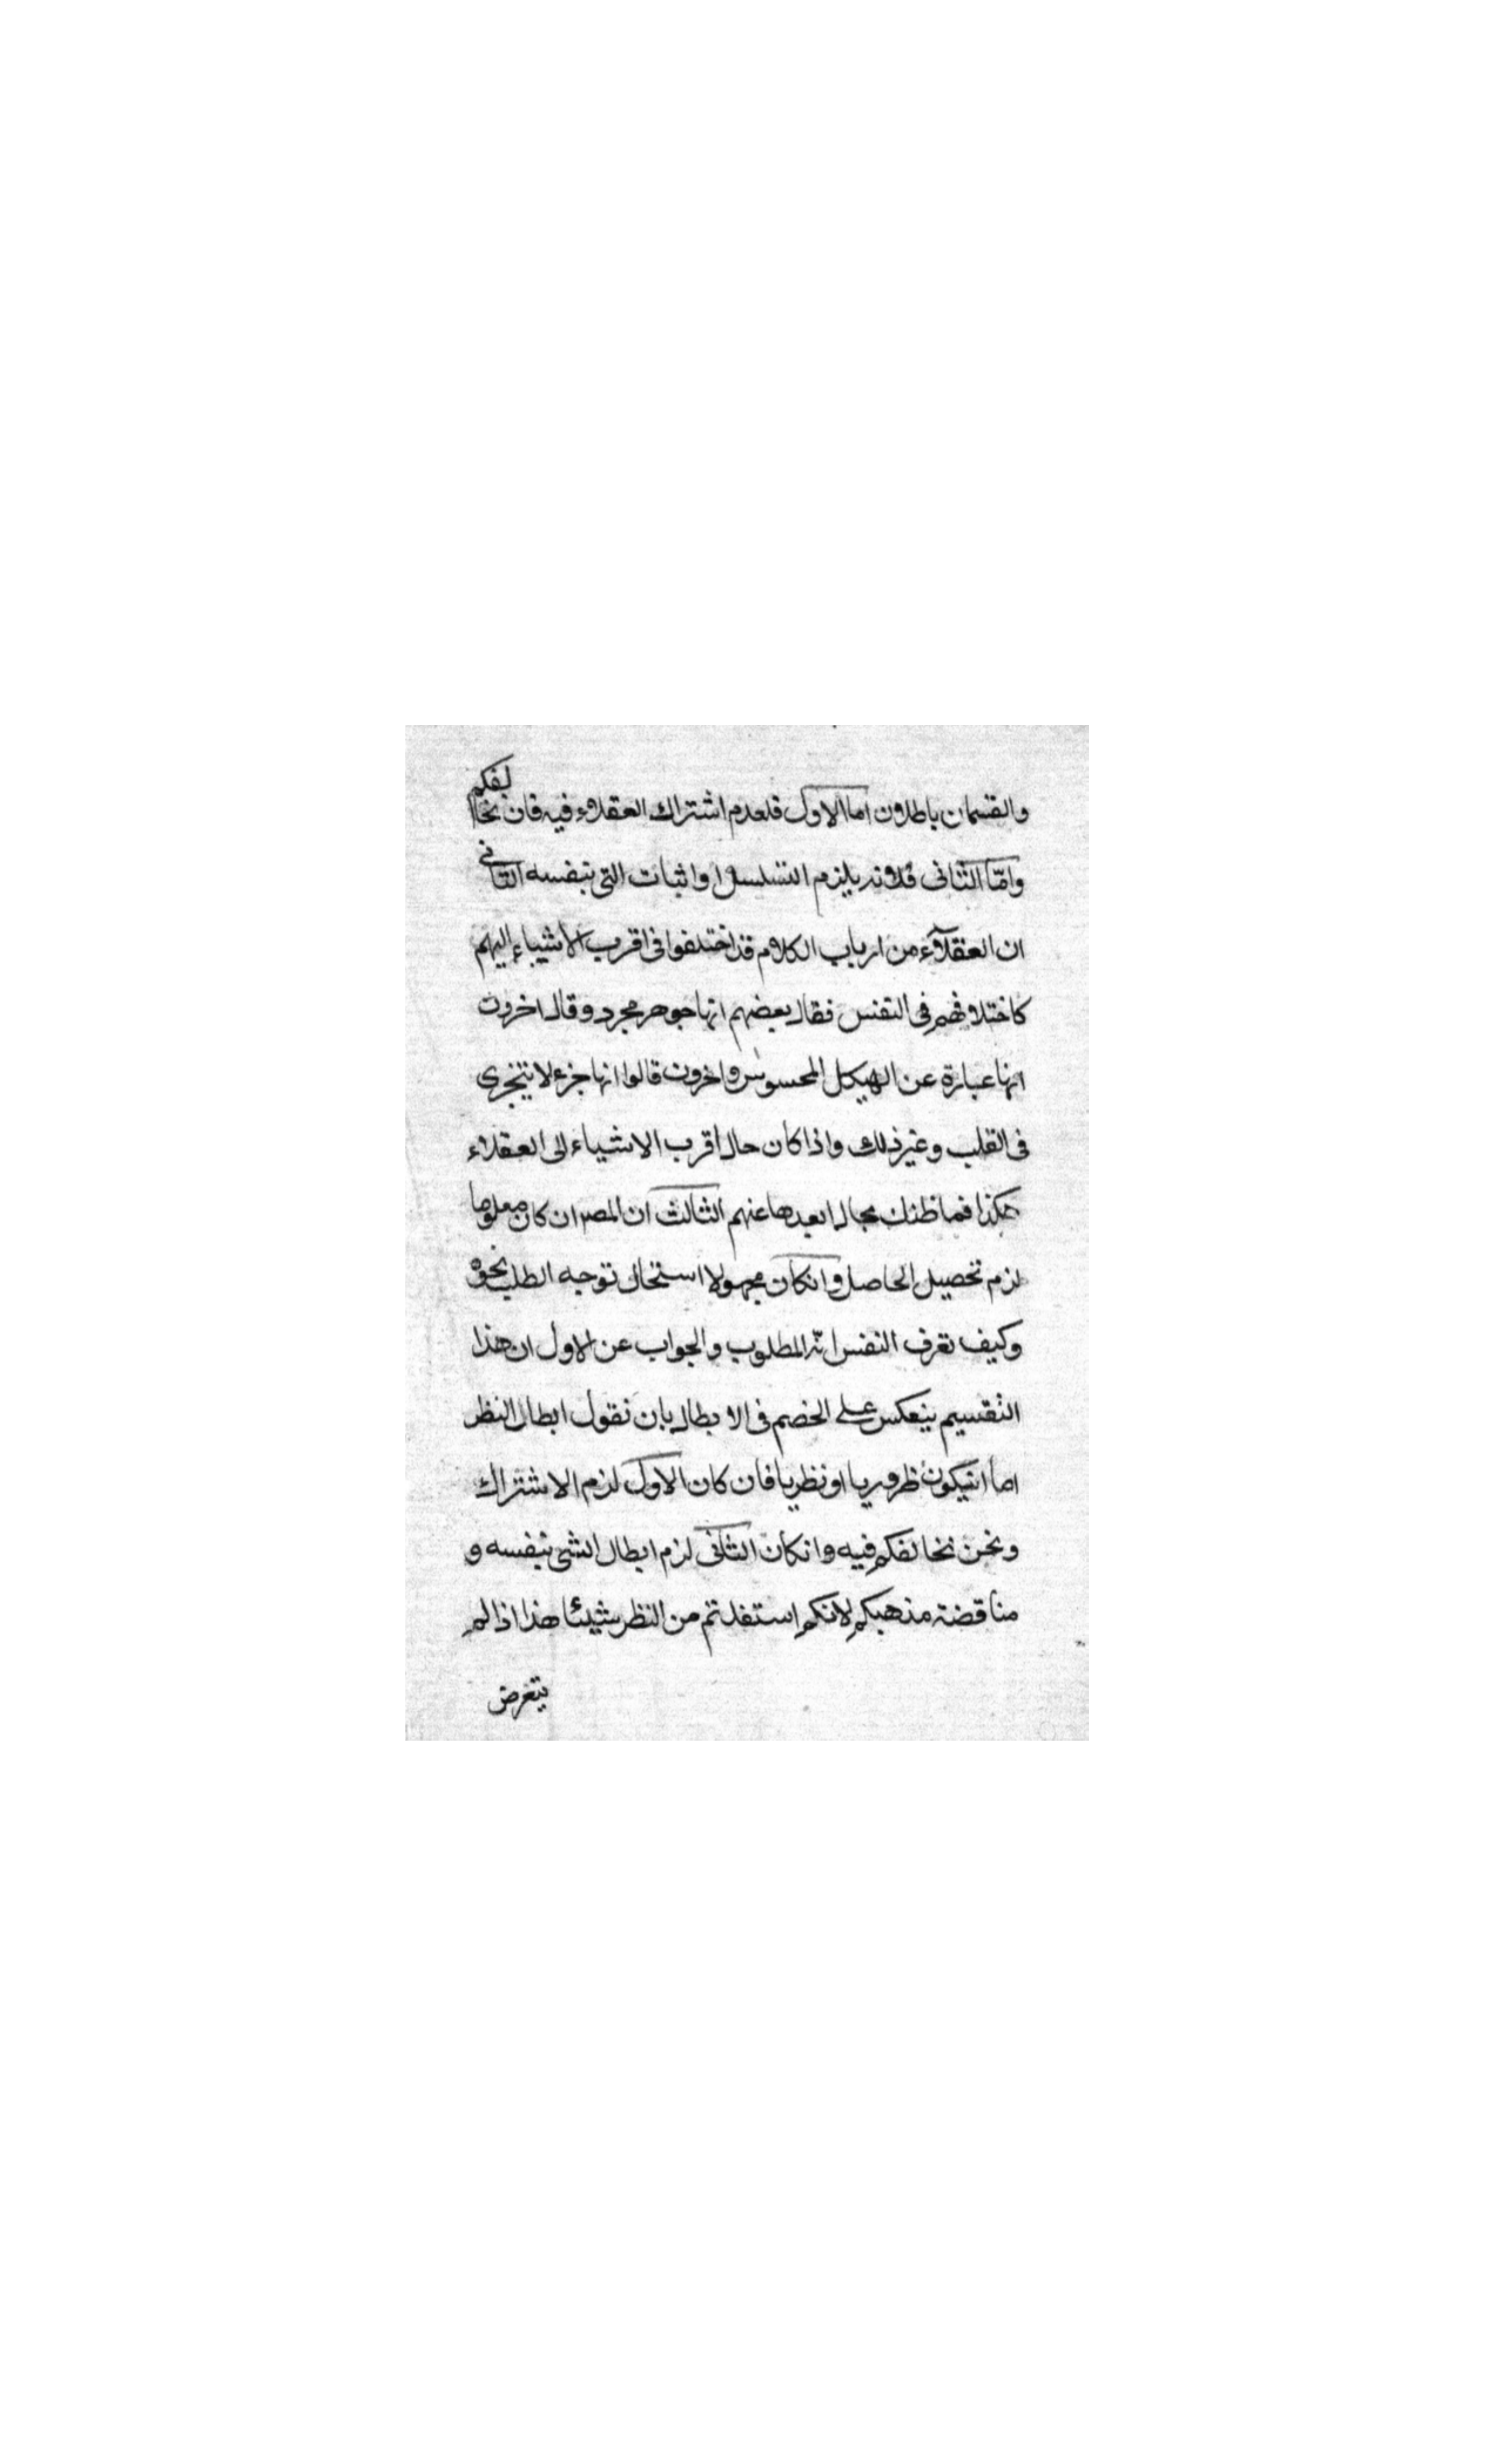 والقسمان باطلان اما الاول فلعدم اشتراك العقلاء فيه فان نخالفكم
وامّا الثانى فلانه يلزم التسلسل او اثبات الشئ بنفسه الثانى
ان العقلآء من ارباب الكلام قد اختلفوا فى اقرب الاشياء اليهم
كاختلافهم فى النفس فقال بعضهم انها جوهر مجرد وقال اخرون
انها عبارة عن الهيكل المحسوس واخرون قالوا انها جزء لا يتجزى
فى القلب وغير ذلك واذا كان حال اقرب الاشياء الى العقلاء
هكذا فما ظنك بحال ابعدها عنهم الثالث ان المصر ان كان معلوما
لزم تحصيل الحاصل وانكان مجهولا استحال توجه الطلب نحوه
وكيف تعرف النفس انّه المطلوب والجواب عن الاول ان هذا
التقسيم ينعكس على الخصم فى الابطال بان نقول ابطال النظر
اما انيكون ظروريا او نظريا فان كان الاول لزم الاشتراك
ونحن نخالفكم فيه وانكان الثانى لزم ابطال الشئ بنفسه و
مناقضة مذهبكم لانكم استفدتم من النظر شيئا هذا اذا لم
يتعرض